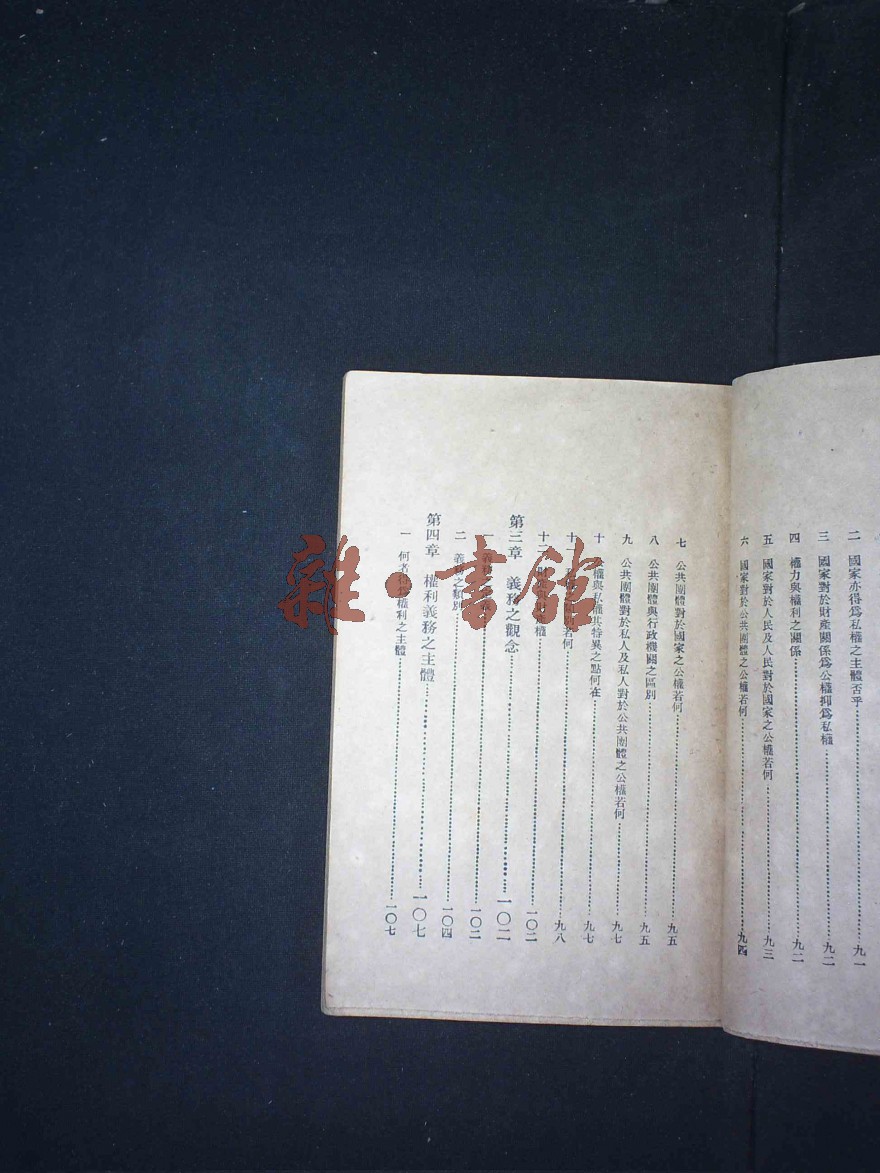 二 國家亦得爲私權之主體否乎 九一
三 國家對於財產關係爲公權抑爲私權 九二
四 權力與權利之關係 九二
五 國家對於人民及人民對於國家之公權若何 九三
六 國家對於公共團體之公權若何 九四
七 公共團體對於國家之公權若何 九五
八 公共團體與行政機關之區別 九五
九 公共團體對於私人及私人對於公共團體之公權若何 九七
十 公權與私權其特異之點何在 九七
十一 若何 九八
十二 財 權 一〇二
第三章 義務之觀念 一〇二
一 義務 一〇二
二 義務之類別 一〇四
第四章 權利義務之主體 一〇七
一 何者得爲權利之主體 一〇七
雜·書館